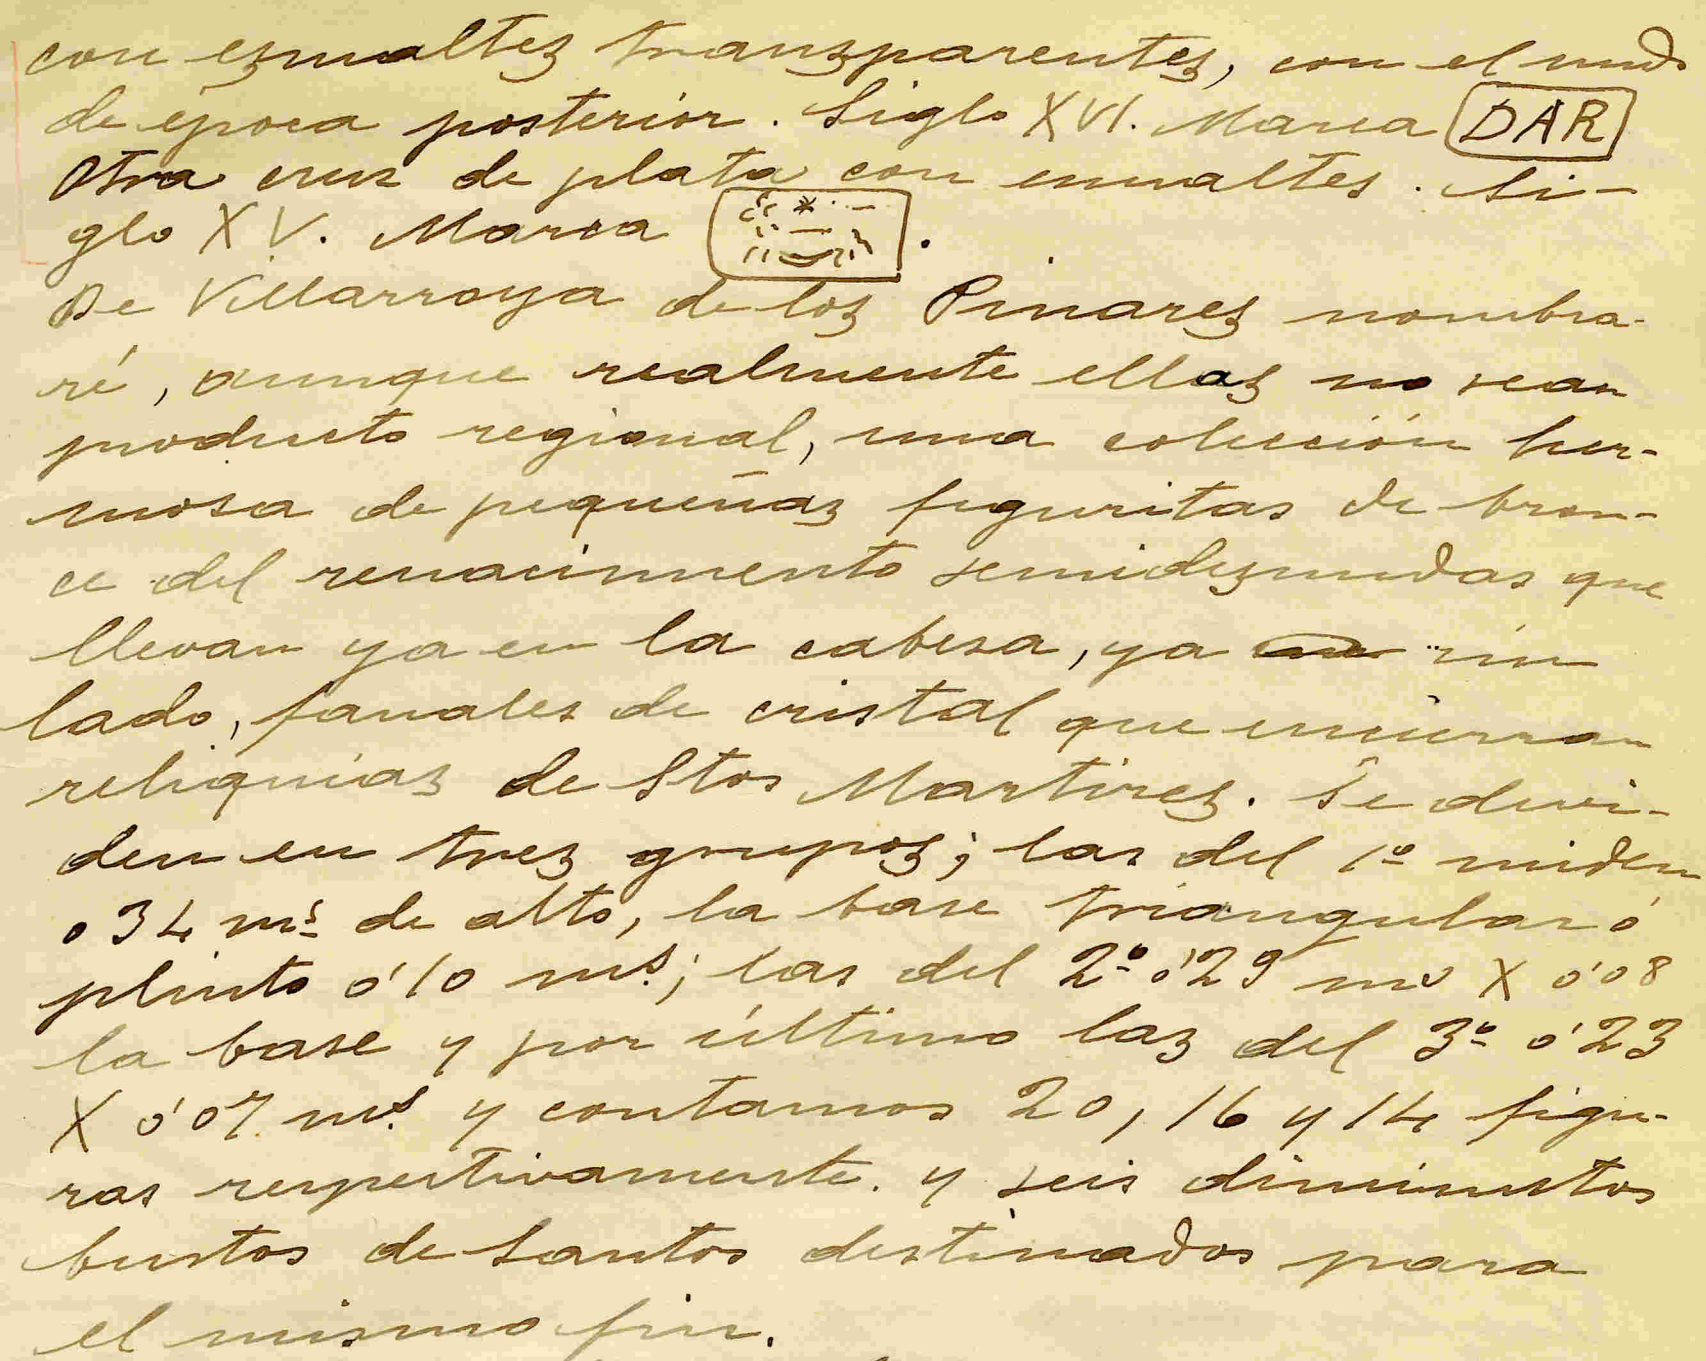 con esmaltes transparentes, con el nudo
de época posterior. Siglo XVI. Marca DAR
Otra cruz de plata con esmaltes. Si-
glo XV. Marca .
De Villarroya de los Pinares nombra-
ré, aunque realmente ellas no sean
producto regional, una colección her-
mosa de pequeñas figuritas de bron-
ce del renacimiento semidesnudas que
llevan ya en la cabesa, ya
lado, fanales de cristal que encierran
reliquias de Stos Martires. Se divi-
den en tres grupos; las del 1º miden
o34 ms de alto, la base triangular ó
plinto ó'10 ms; las del 2º ó'29 ms X ó'08
la base y por último las del 3º ó'23
X ó'07 ms. y contamos 20, 16 y 14 figu-
ras respectivamente. y seis diminutos
bustos de Santos destinados para
el mismo fin.